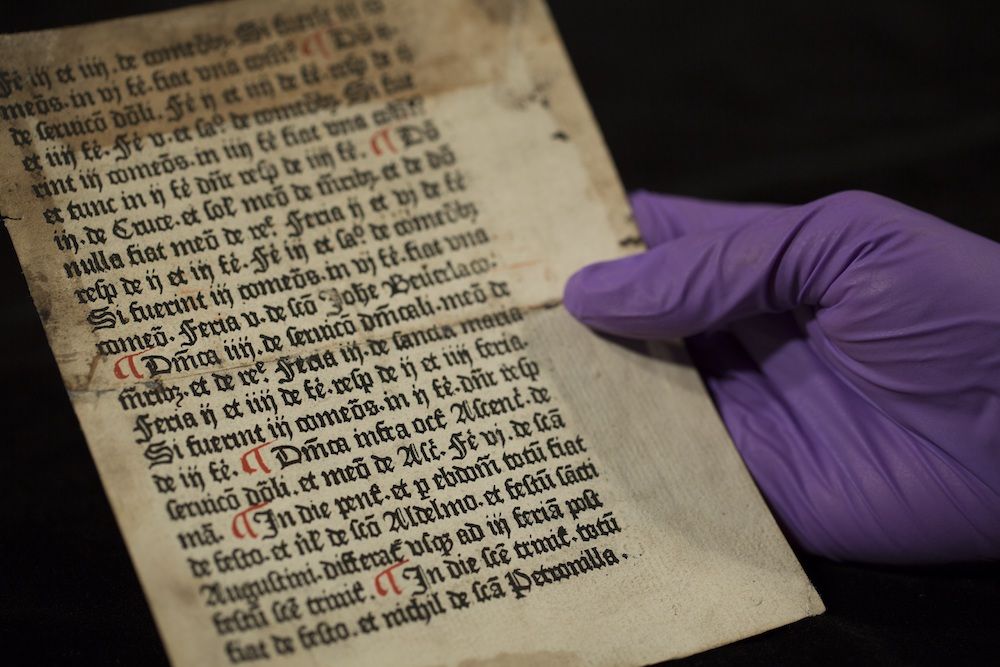 Fé iij et iiij. de comeḿbꝫ. Si fuerint iij co
meōs. in vj fé. fiat vna com̄. ¶ Dō
de seruicō dōli. Fé ij et iiij de fé. resp̄ de iij
et iiij fé. Fé v. et saᵒ. de comeōbꝫ. Si fue
rint iij comeōs. in iiij fé fiat vna com̄.
et tunc in ij fé dn̄r resp̄ de iiij fé. ¶ Dō
iij. de Cruce. et sol̄ meō de m̄ribꝫ. et de dō
nulla fiat meō de reᵉ. Feria ij et vj de fé
resp̄ de ij et iij fé. Fé iij et saᵒ de comeōbꝫ
Si fuerint iij comeōs. in vj fé. fiat vna
comeō. Feria v. de scō Johe Beuerlaco.
¶ Dm̄ca iiij. de seruicō dm̄cali. meō de
m̄ribꝫ. et de reᵉ Feria iij. de sancta maria
Feria ij et iiij de fé. resp̄ de ij et iiij feria.
Si fuerint iij comeōs. in ij fé. dn̄r resp̄
de iij fé. ¶ Dm̄ca infra octꝭ Ascenꝭ. de
seruicō dōli. et meō de Asꝭ. Fé vj. de scā
mā. ¶ In die penꝭ. et p ebdom̄ totū fiat
de festo. et nꝭl de scō Aldelmo. et festū sācti
Augustini. differaꝭ vsqꝫ ad iij feriā post
festū scē trinitꝭ. ¶ In die scē trinitꝭ. totū
fiat de festo. et nichil de scā Petronilla.